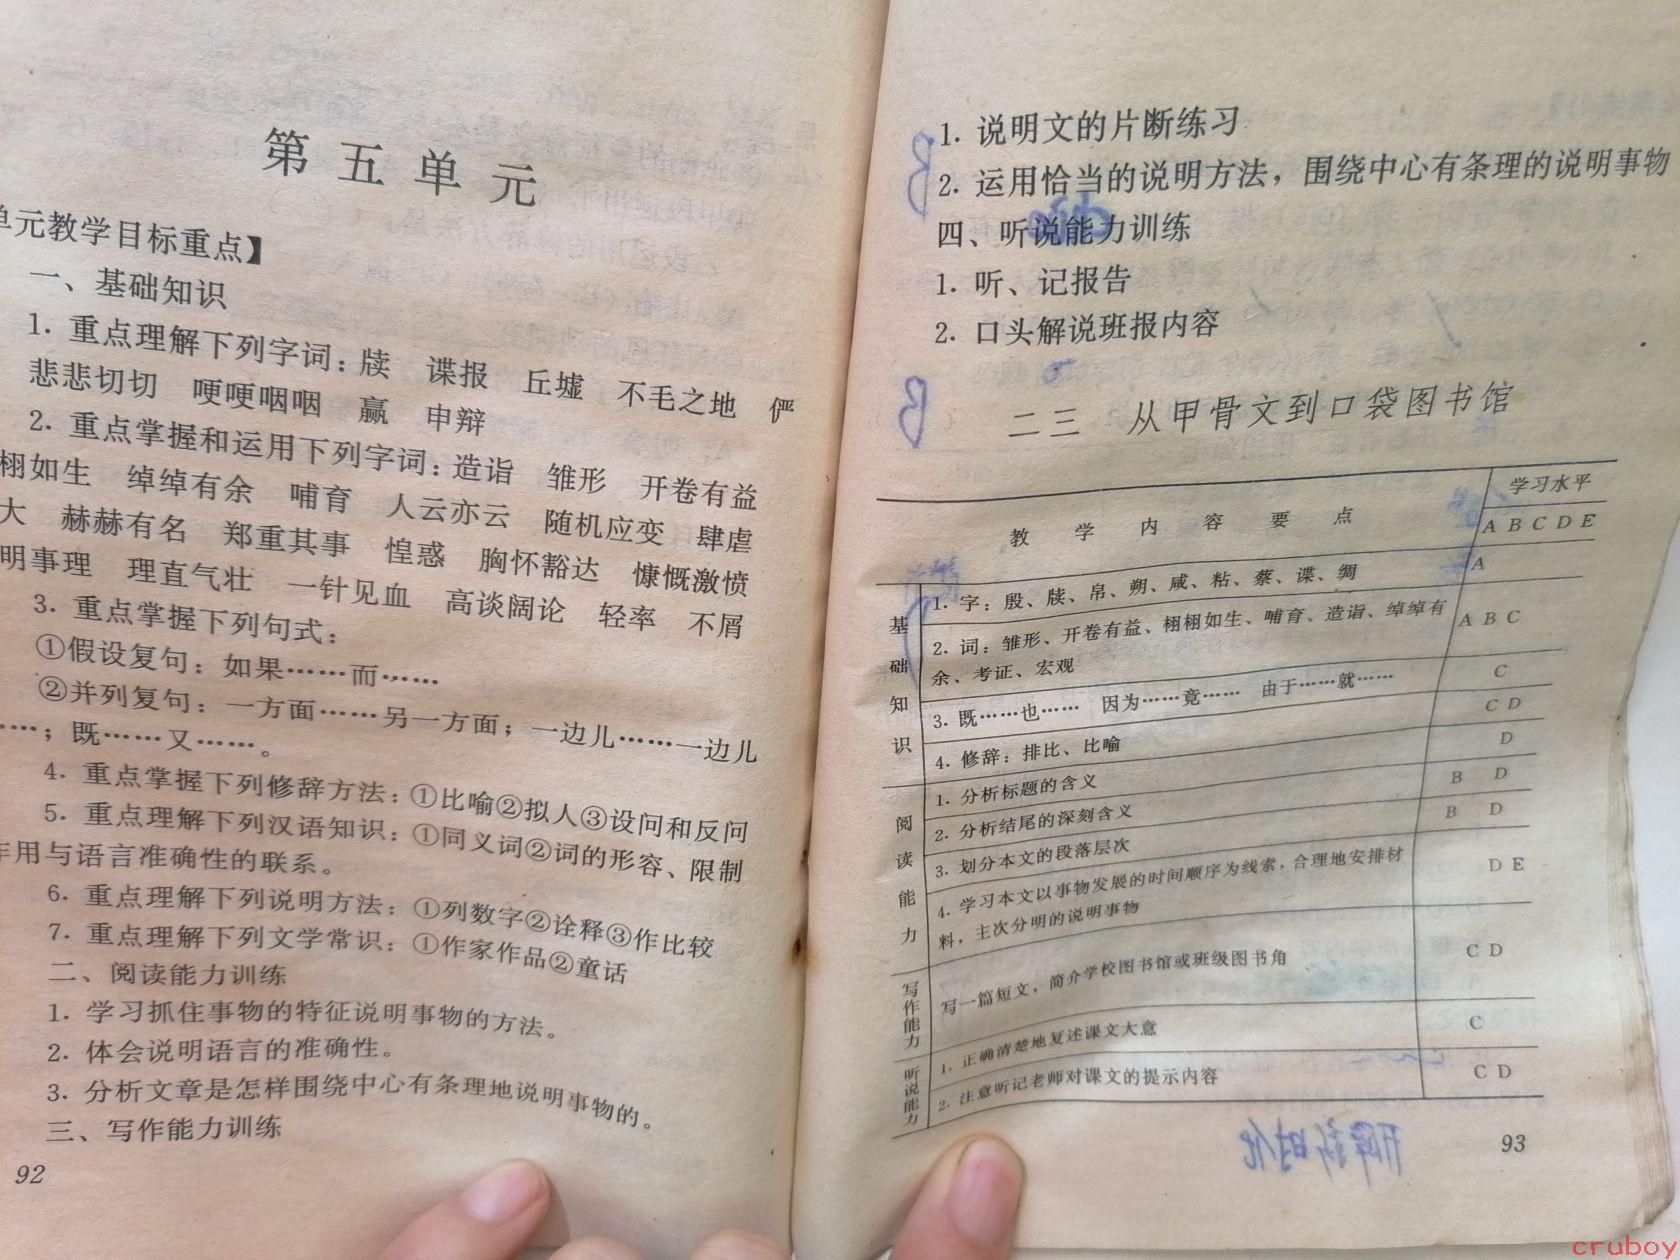 第五单元
单元教学目标重点】
一、基础知识
1. 重点理解下列字词：牍 谍报 丘墟 不毛之地 俨
悲悲切切 哽哽咽咽 赢 申辩
2. 重点掌握和运用下列字词：造诣 雏形 开卷有益
栩如生 绰绰有余 哺育 人云亦云 随机应变 肆虐
大 赫赫有名 郑重其事 惶惑 胸怀豁达 慷慨激愤
明事理 理直气壮 一针见血 高谈阔论 轻率 不屑
3. 重点掌握下列句式：
①假设复句：如果……而……
②并列复句：一方面……另一方面；一边儿……一边儿
……；既……又……。
4. 重点掌握下列修辞方法：①比喻②拟人③设问和反问
5. 重点理解下列汉语知识：①同义词②词的形容、限制
作用与语言准确性的联系。
6. 重点理解下列说明方法：①列数字②诠释③作比较
7. 重点理解下列文学常识：①作家作品②童话
二、阅读能力训练
1. 学习抓住事物的特征说明事物的方法。
2. 体会说明语言的准确性。
3. 分析文章是怎样围绕中心有条理地说明事物的。
三、写作能力训练
92
1. 说明文的片断练习
2. 运用恰当的说明方法，围绕中心有条理的说明事物
四、听说能力训练
1. 听、记报告
2. 口头解说班报内容
二三 从甲骨文到口袋图书馆
教学内容要点 学习水平
A B C D E
基础知识
1. 字：殷、牍、帛、朔、咸、粘、蔡、谍、绸 A
2. 词：雏形、开卷有益、栩栩如生、哺育、造诣、绰绰有 A B C
余、考证、宏观
3. 既……也…… 因为……竟…… 由于……就…… C
4. 修辞：排比、比喻 C D
阅读能力
1. 分析标题的含义 D
2. 分析结尾的深刻含义 B D
3. 划分本文的段落层次 B D
4. 学习本文以事物发展的时间顺序为线索，合理地安排材 D E
料，主次分明的说明事物
写作能力
写一篇短文，简介学校图书馆或班级图书角 C D
听说能力
1. 正确清楚地复述课文大意 C
2. 注意听记老师对课文的提示内容 C D
93
cruboy